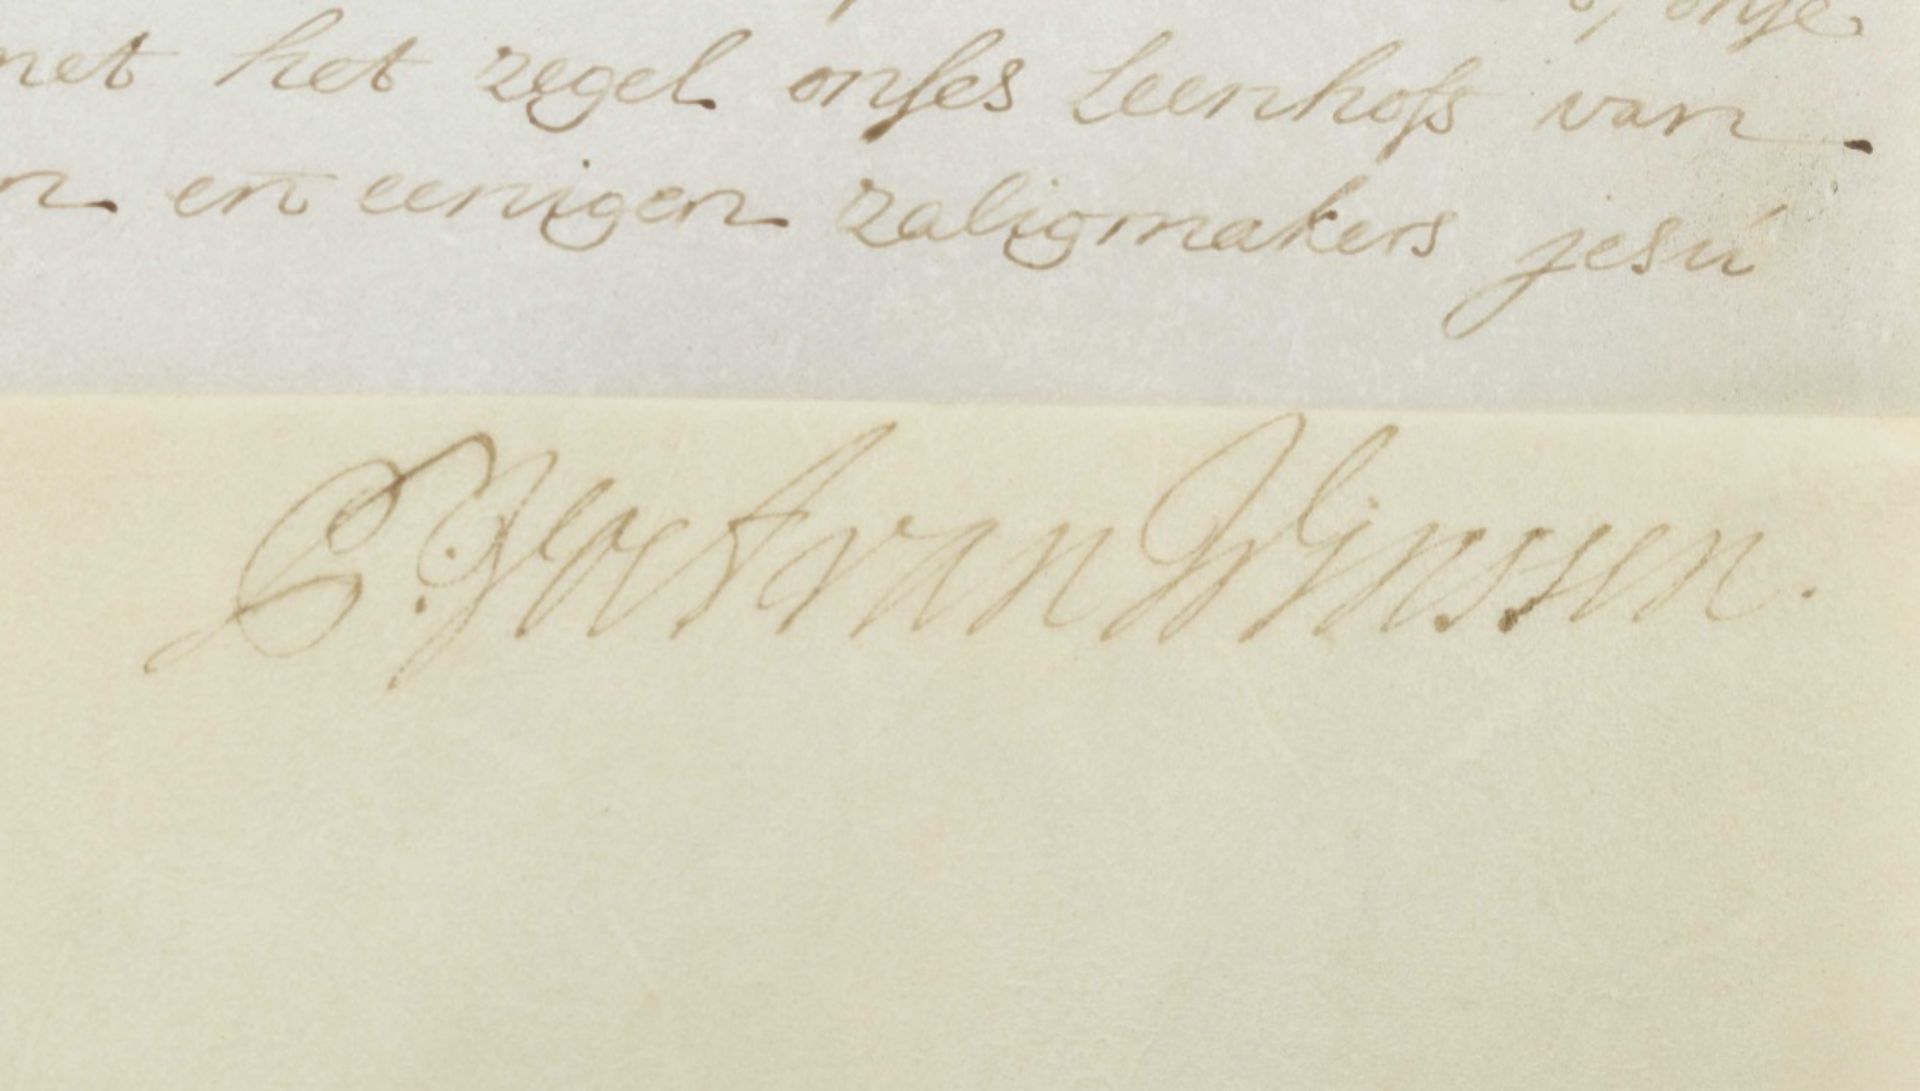 onse
met het zegel onses Leenhofs van
en eenigen zaligmakers jesú
van Wijnssen.